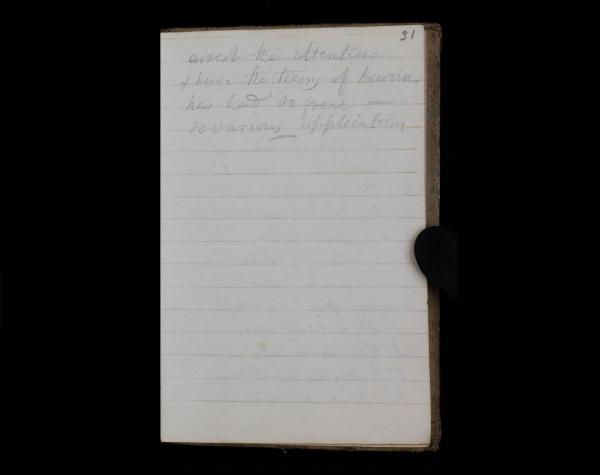 31
arrest the attention
& hence the theory of
has had so great
so various applications